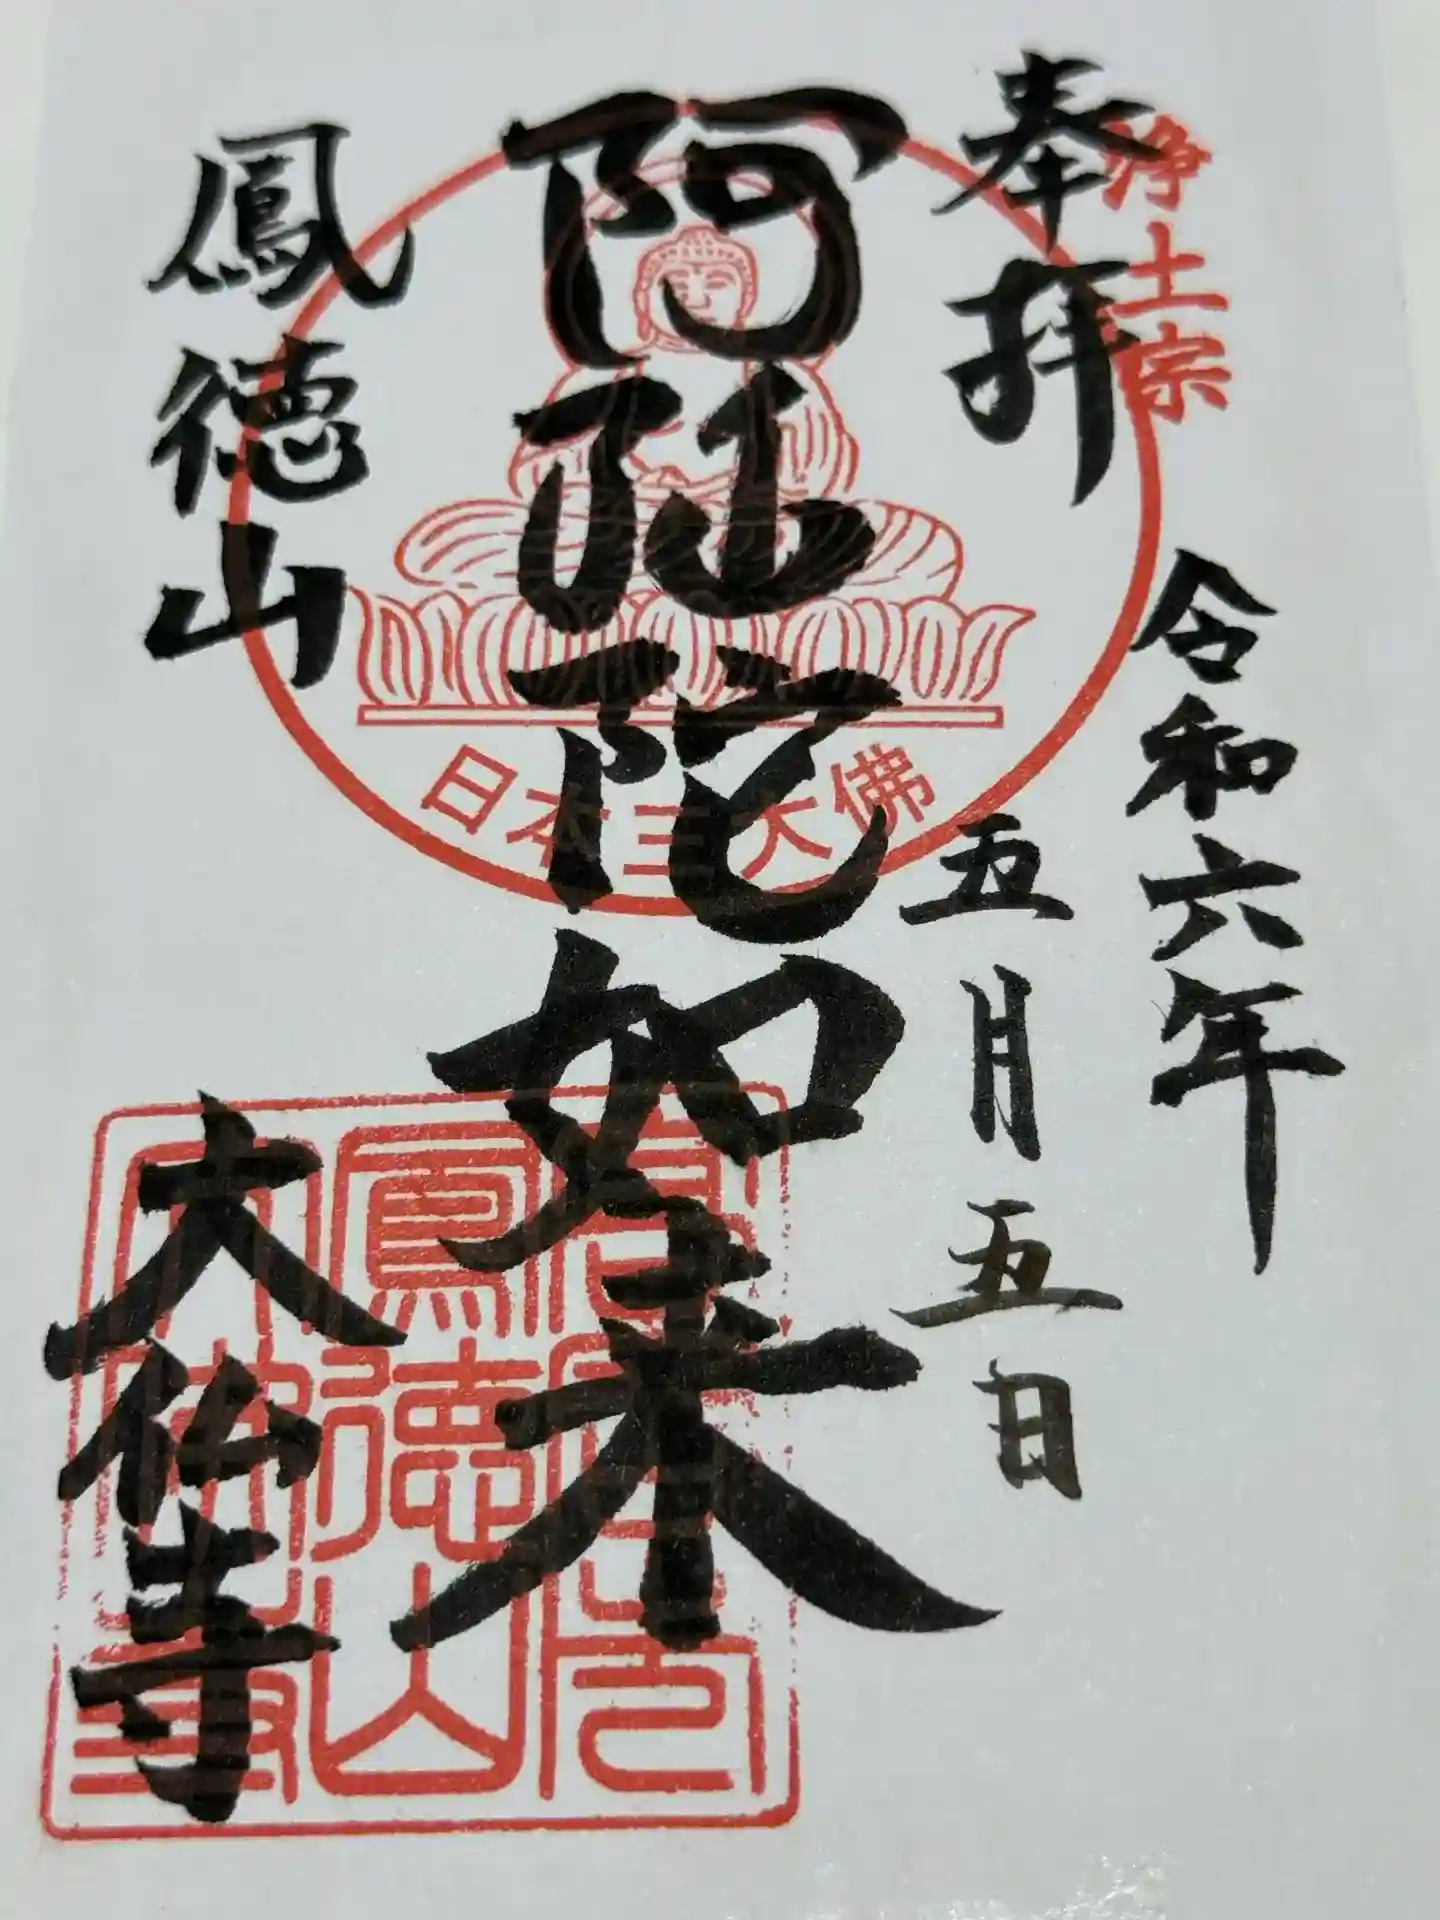 奉拝
浄土宗
令和六年
五月五日
阿弥陀如来
日本三大佛
鳳徳山
大仏寺
高岡
鳳徳山
大佛寺